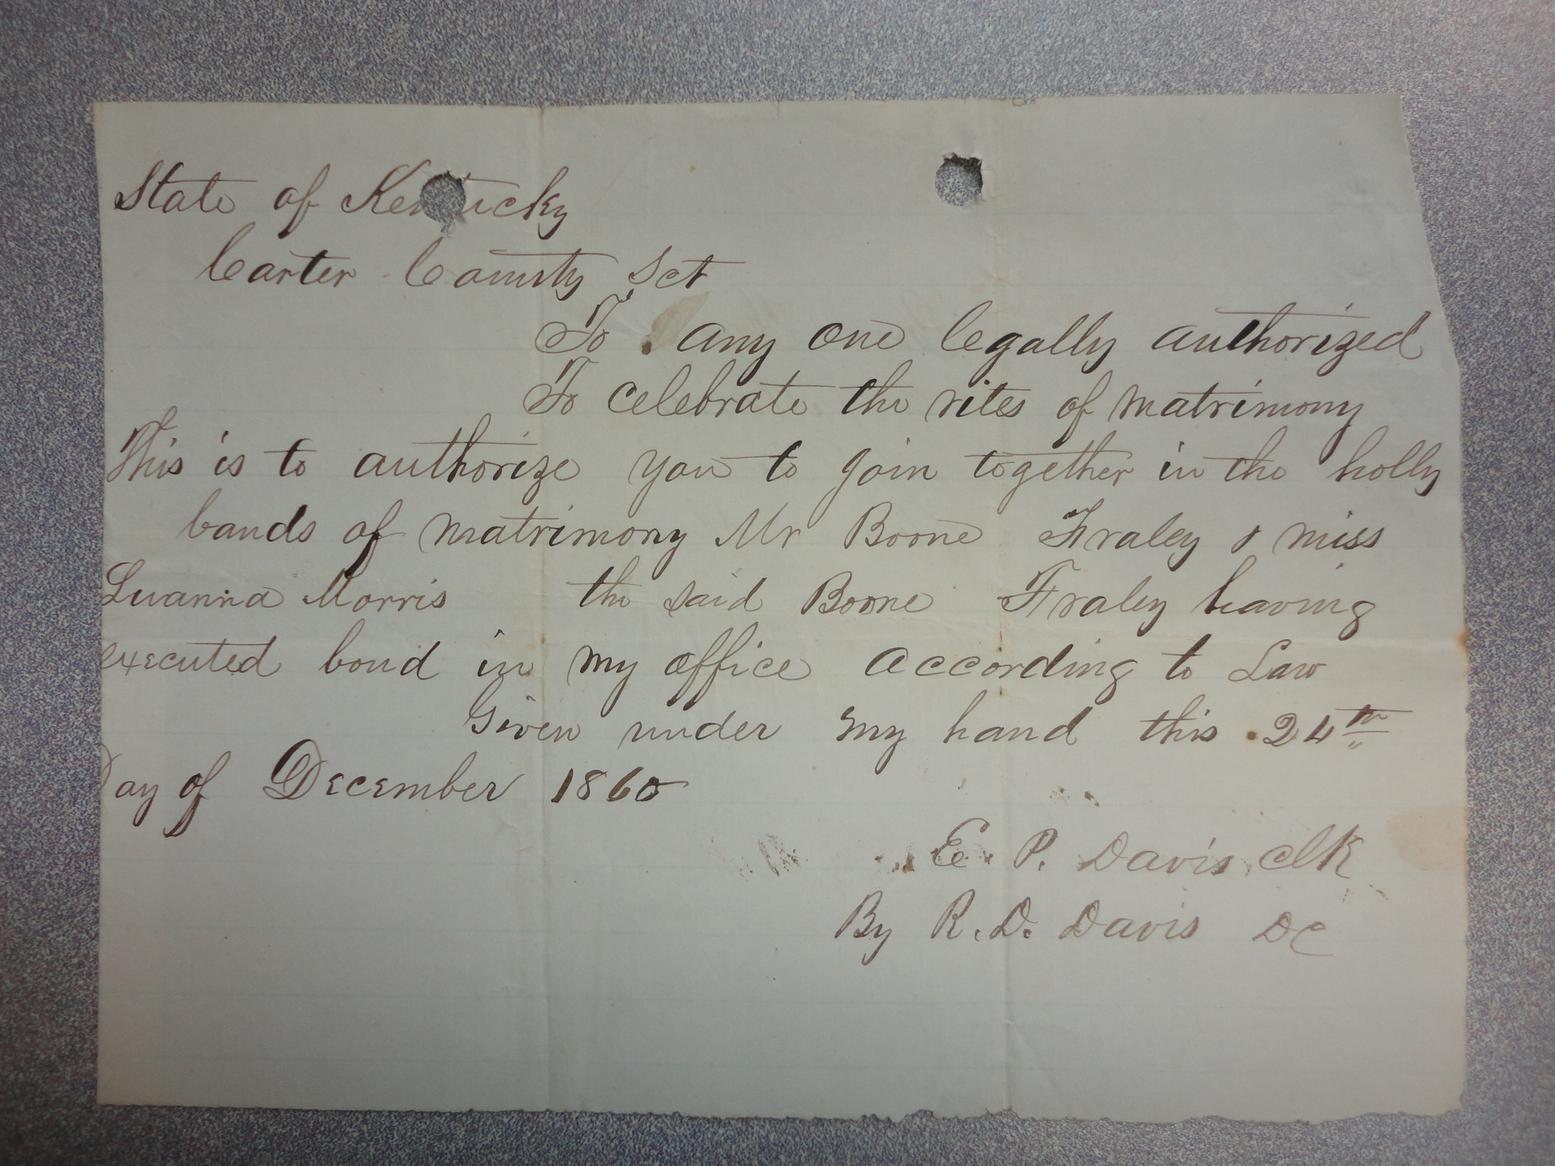 State of Kentucky
Carter County Sct
To any one legally authorized
To celebrate the rites of matrimony
This is to authorize you to join together in the holly
bands of matrimony Mr Boone Fraley & miss
Luanna Morris the said Boone Fraley having
executed bond in my office according to Law
Given under my hand this 24th
Day of December 1860
E. P. Davis clk
By R. D. Davis DC